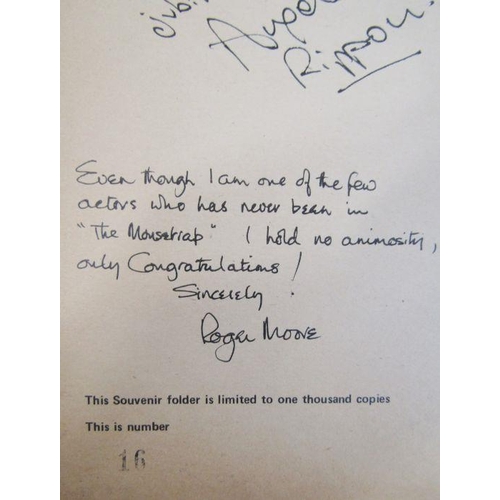 Even though I am one of the few
actors who has never been in
"The Mousetrap" I hold no animosity,
only Congratulations!
Sincerely.
Roger Moore
This Souvenir folder is limited to one thousand copies
This is number
16